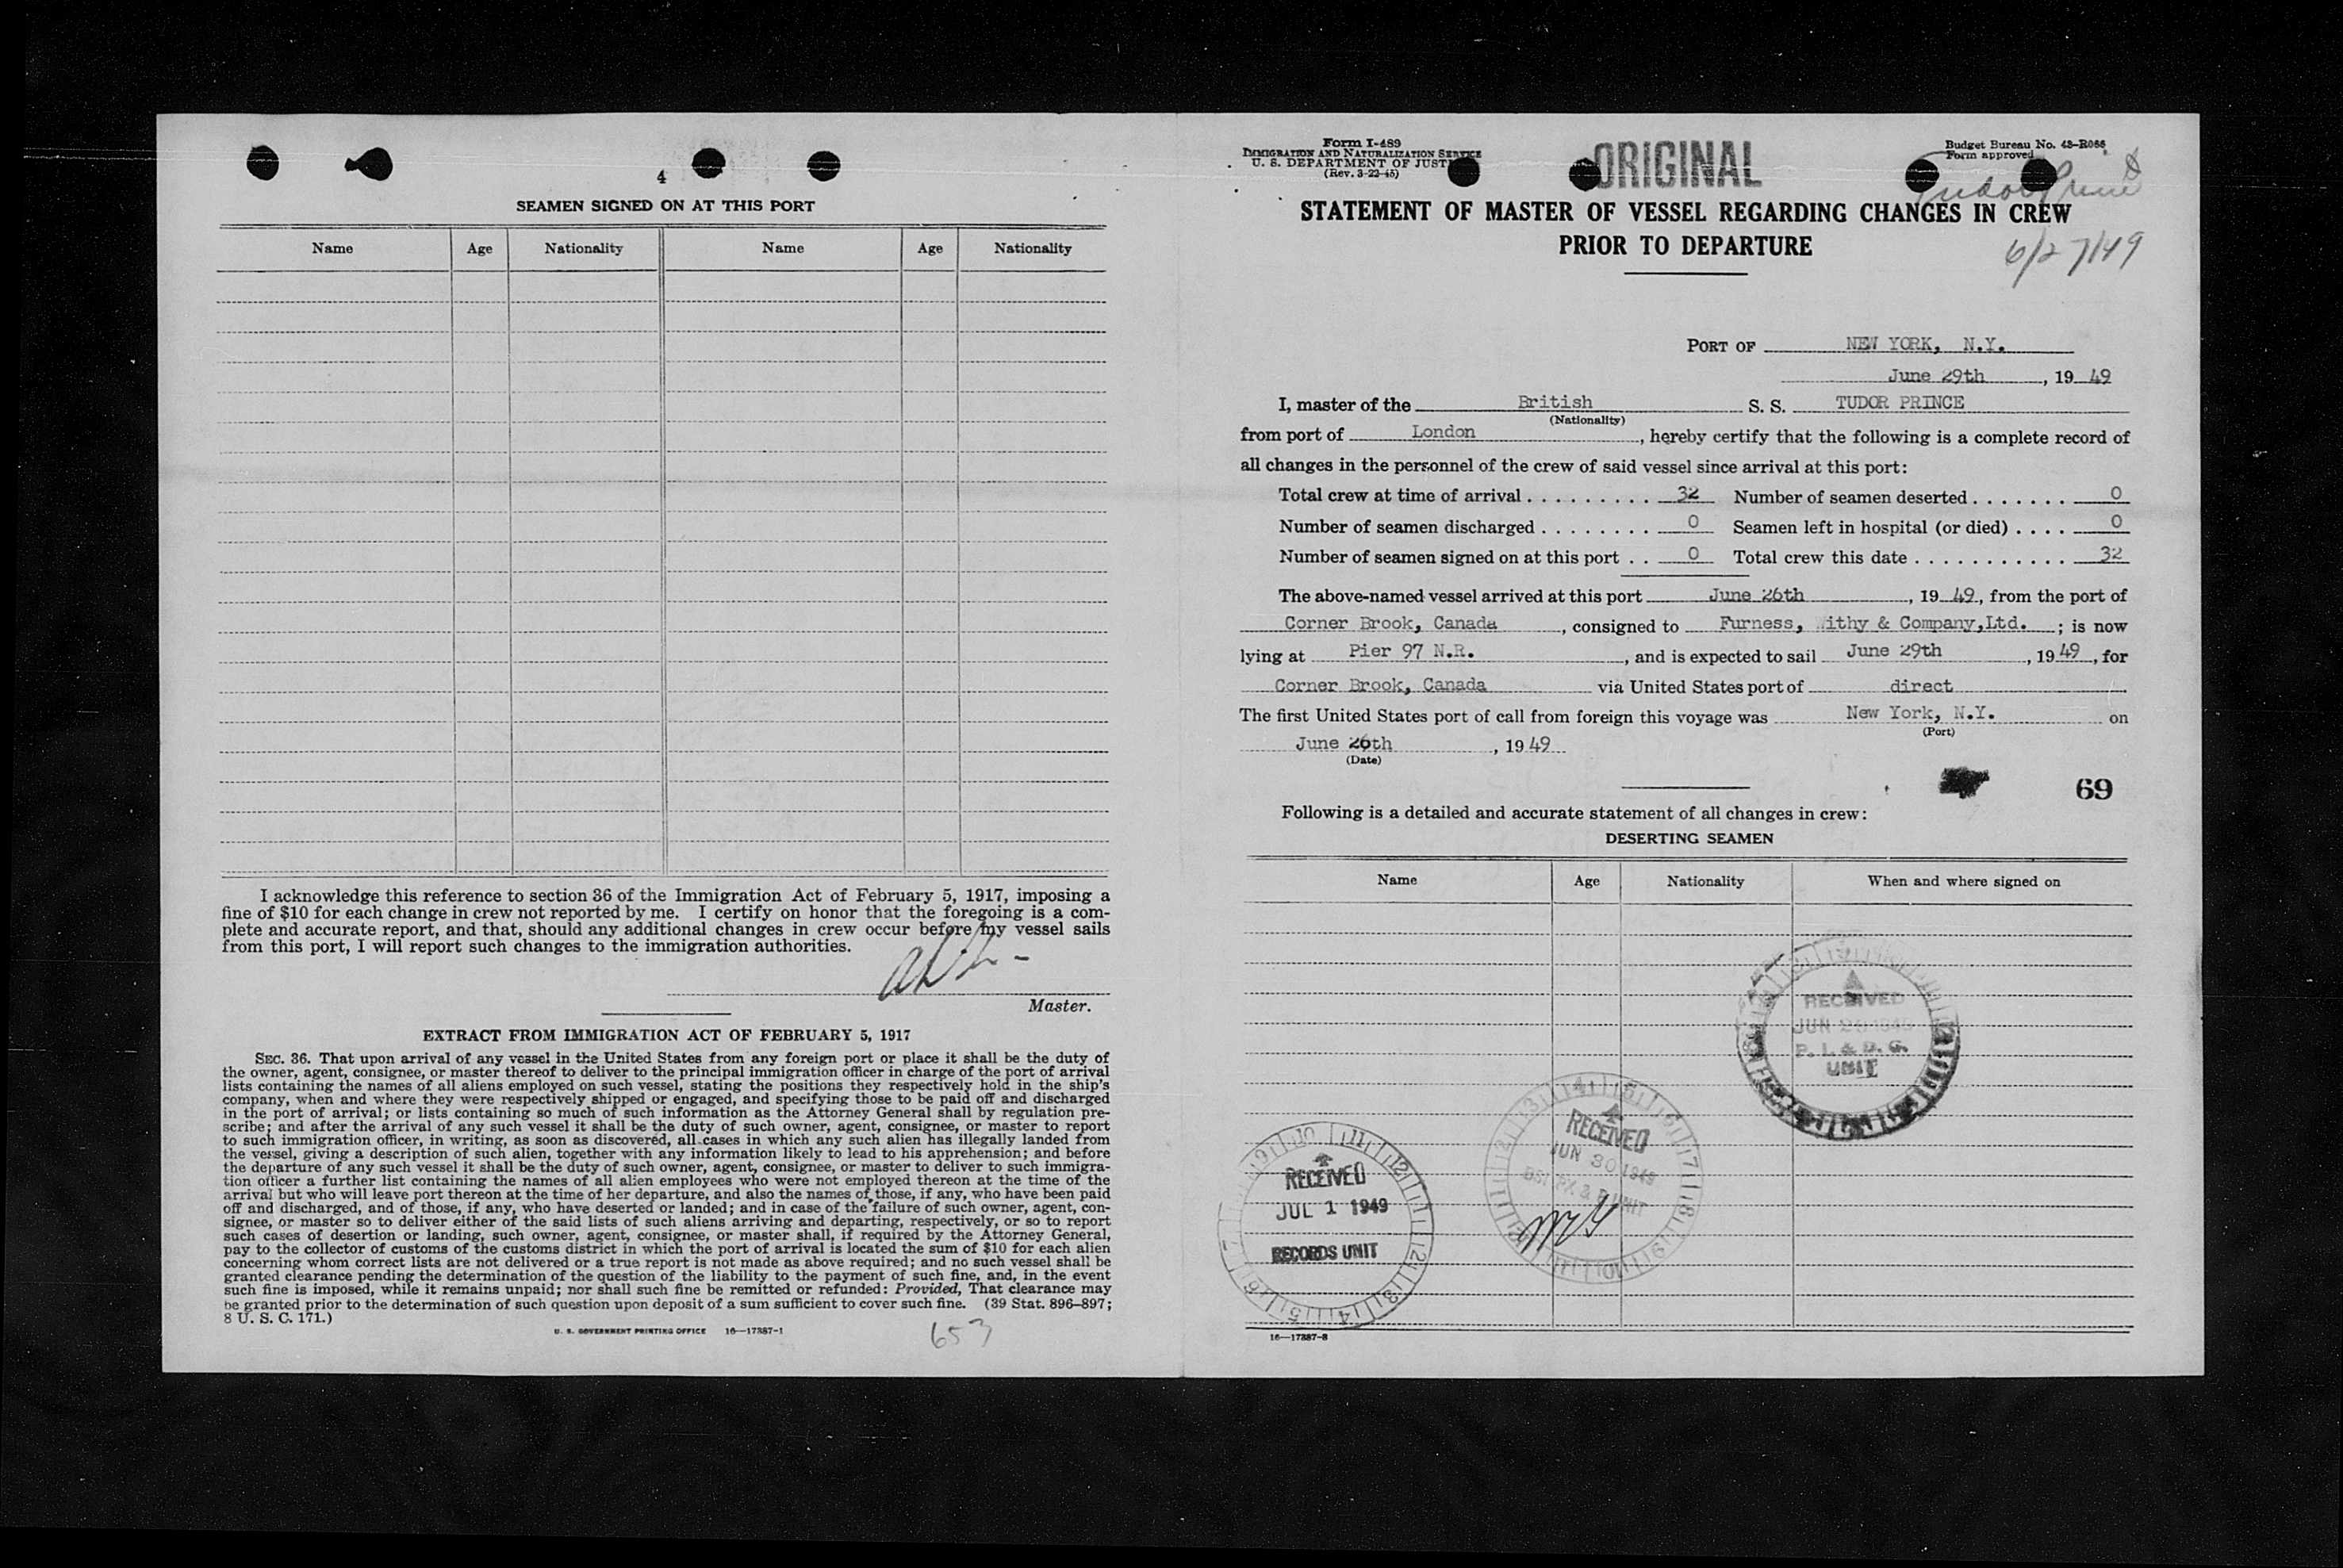 4
SEAMEN SIGNED ON AT THIS PORT
Name Age Nationality Name Age Nationality
I acknowledge this reference to section 36 of the Immigration Act of February 5, 1917, imposing a
fine of $10 for each change in crew not reported by me. I certify on honor that the foregoing is a com-
plete and accurate report, and that, should any additional changes in crew occur before my vessel sails
from this port, I will report such changes to the immigration authorities.
Master.
EXTRACT FROM IMMIGRATION ACT OF FEBRUARY 5, 1917
SEC. 36. That upon arrival of any vessel in the United States from any foreign port or place it shall be the duty of
the owner, agent, consignee, or master thereof to deliver to the principal immigration officer in charge of the port of arrival
lists containing the names of all aliens employed on such vessel, stating the positions they respectively hold in the ship's
company, when and where they were respectively shipped or engaged, and specifying those to be paid off and discharged
in the port of arrival; or lists containing so much of such information as the Attorney General shall by regulation pre-
scribe; and after the arrival of any such vessel it shall be the duty of such owner, agent, consignee, or master to report
to such immigration officer, in writing, as soon as discovered, all cases in which any such alien has illegally landed from
the vessel, giving a description of such alien, together with any information likely to lead to his apprehension; and before
the departure of any such vessel it shall be the duty of such owner, agent, consignee, or master to deliver to such immigra-
tion officer a further list containing the names of all alien employees who were not employed thereon at the time of the
arrival but who will leave port thereon at the time of her departure, and also the names of those, if any, who have been paid
off and discharged, and of those, if any, who have deserted or landed; and in case of the failure of such owner, agent, con-
signee, or master so to deliver either of the said lists of such aliens arriving and departing, respectively, or so to report
such cases of desertion or landing, such owner, agent, consignee, or master shall, if required by the Attorney General,
pay to the collector of customs of the customs district in which the port of arrival is located the sum of $10 for each alien
concerning whom correct lists are not delivered or a true report is not made as above required; and no such vessel shall be
granted clearance pending the determination of the question of the liability to the payment of such fine, and, in the event
such fine is imposed, while it remains unpaid; nor shall such fine be remitted or refunded: Provided, That clearance may
be granted prior to the determination of such question upon deposit of a sum sufficient to cover such fine. (39 Stat. 896–897;
8 U. S. C. 171.)
U. S. GOVERNMENT PRINTING OFFICE 16—17387-1
653
Form I-489
IMMIGRATION AND NATURALIZATION SERVICE
U. S. DEPARTMENT OF JUST
(Rev. 3-22-45)
ORIGINAL
Budget Bureau No. 43–R066
Form approved
Tudor Prince
STATEMENT OF MASTER OF VESSEL REGARDING CHANGES IN CREW
PRIOR TO DEPARTURE
6/27/49
PORT OF NEW YORK, N.Y.
June 29th, 19 49
I, master of the British S. S. TUDOR PRINCE
(Nationality)
from port of London, hereby certify that the following is a complete record of
all changes in the personnel of the crew of said vessel since arrival at this port:
Total crew at time of arrival . . . . . . . . . 32 Number of seamen deserted . . . . . . . 0
Number of seamen discharged . . . . . . . . 0 Seamen left in hospital (or died) . . . . 0
Number of seamen signed on at this port . . 0 Total crew this date . . . . . . . . . . . 32
The above-named vessel arrived at this port June 26th, 19 49, from the port of
Corner Brook, Canada, consigned to Furness, ithy & Company,Ltd. ; is now
lying at Pier 97 N.R., and is expected to sail June 29th, 19 49, for
Corner Brook, Canada via United States port of direct
The first United States port of call from foreign this voyage was New York, N.Y. on
(Port)
June 26th, 19 49
(Date)
69
Following is a detailed and accurate statement of all changes in crew:
DESERTING SEAMEN
Name Age Nationality When and where signed on
RECEIVED
JUN 1949
P. I. & D. G.
UNIT
RECEIVED
JUN 30 1949
UNIT
RECEIVED
JUL 1 1949
RECORDS UNIT
16—17387-3